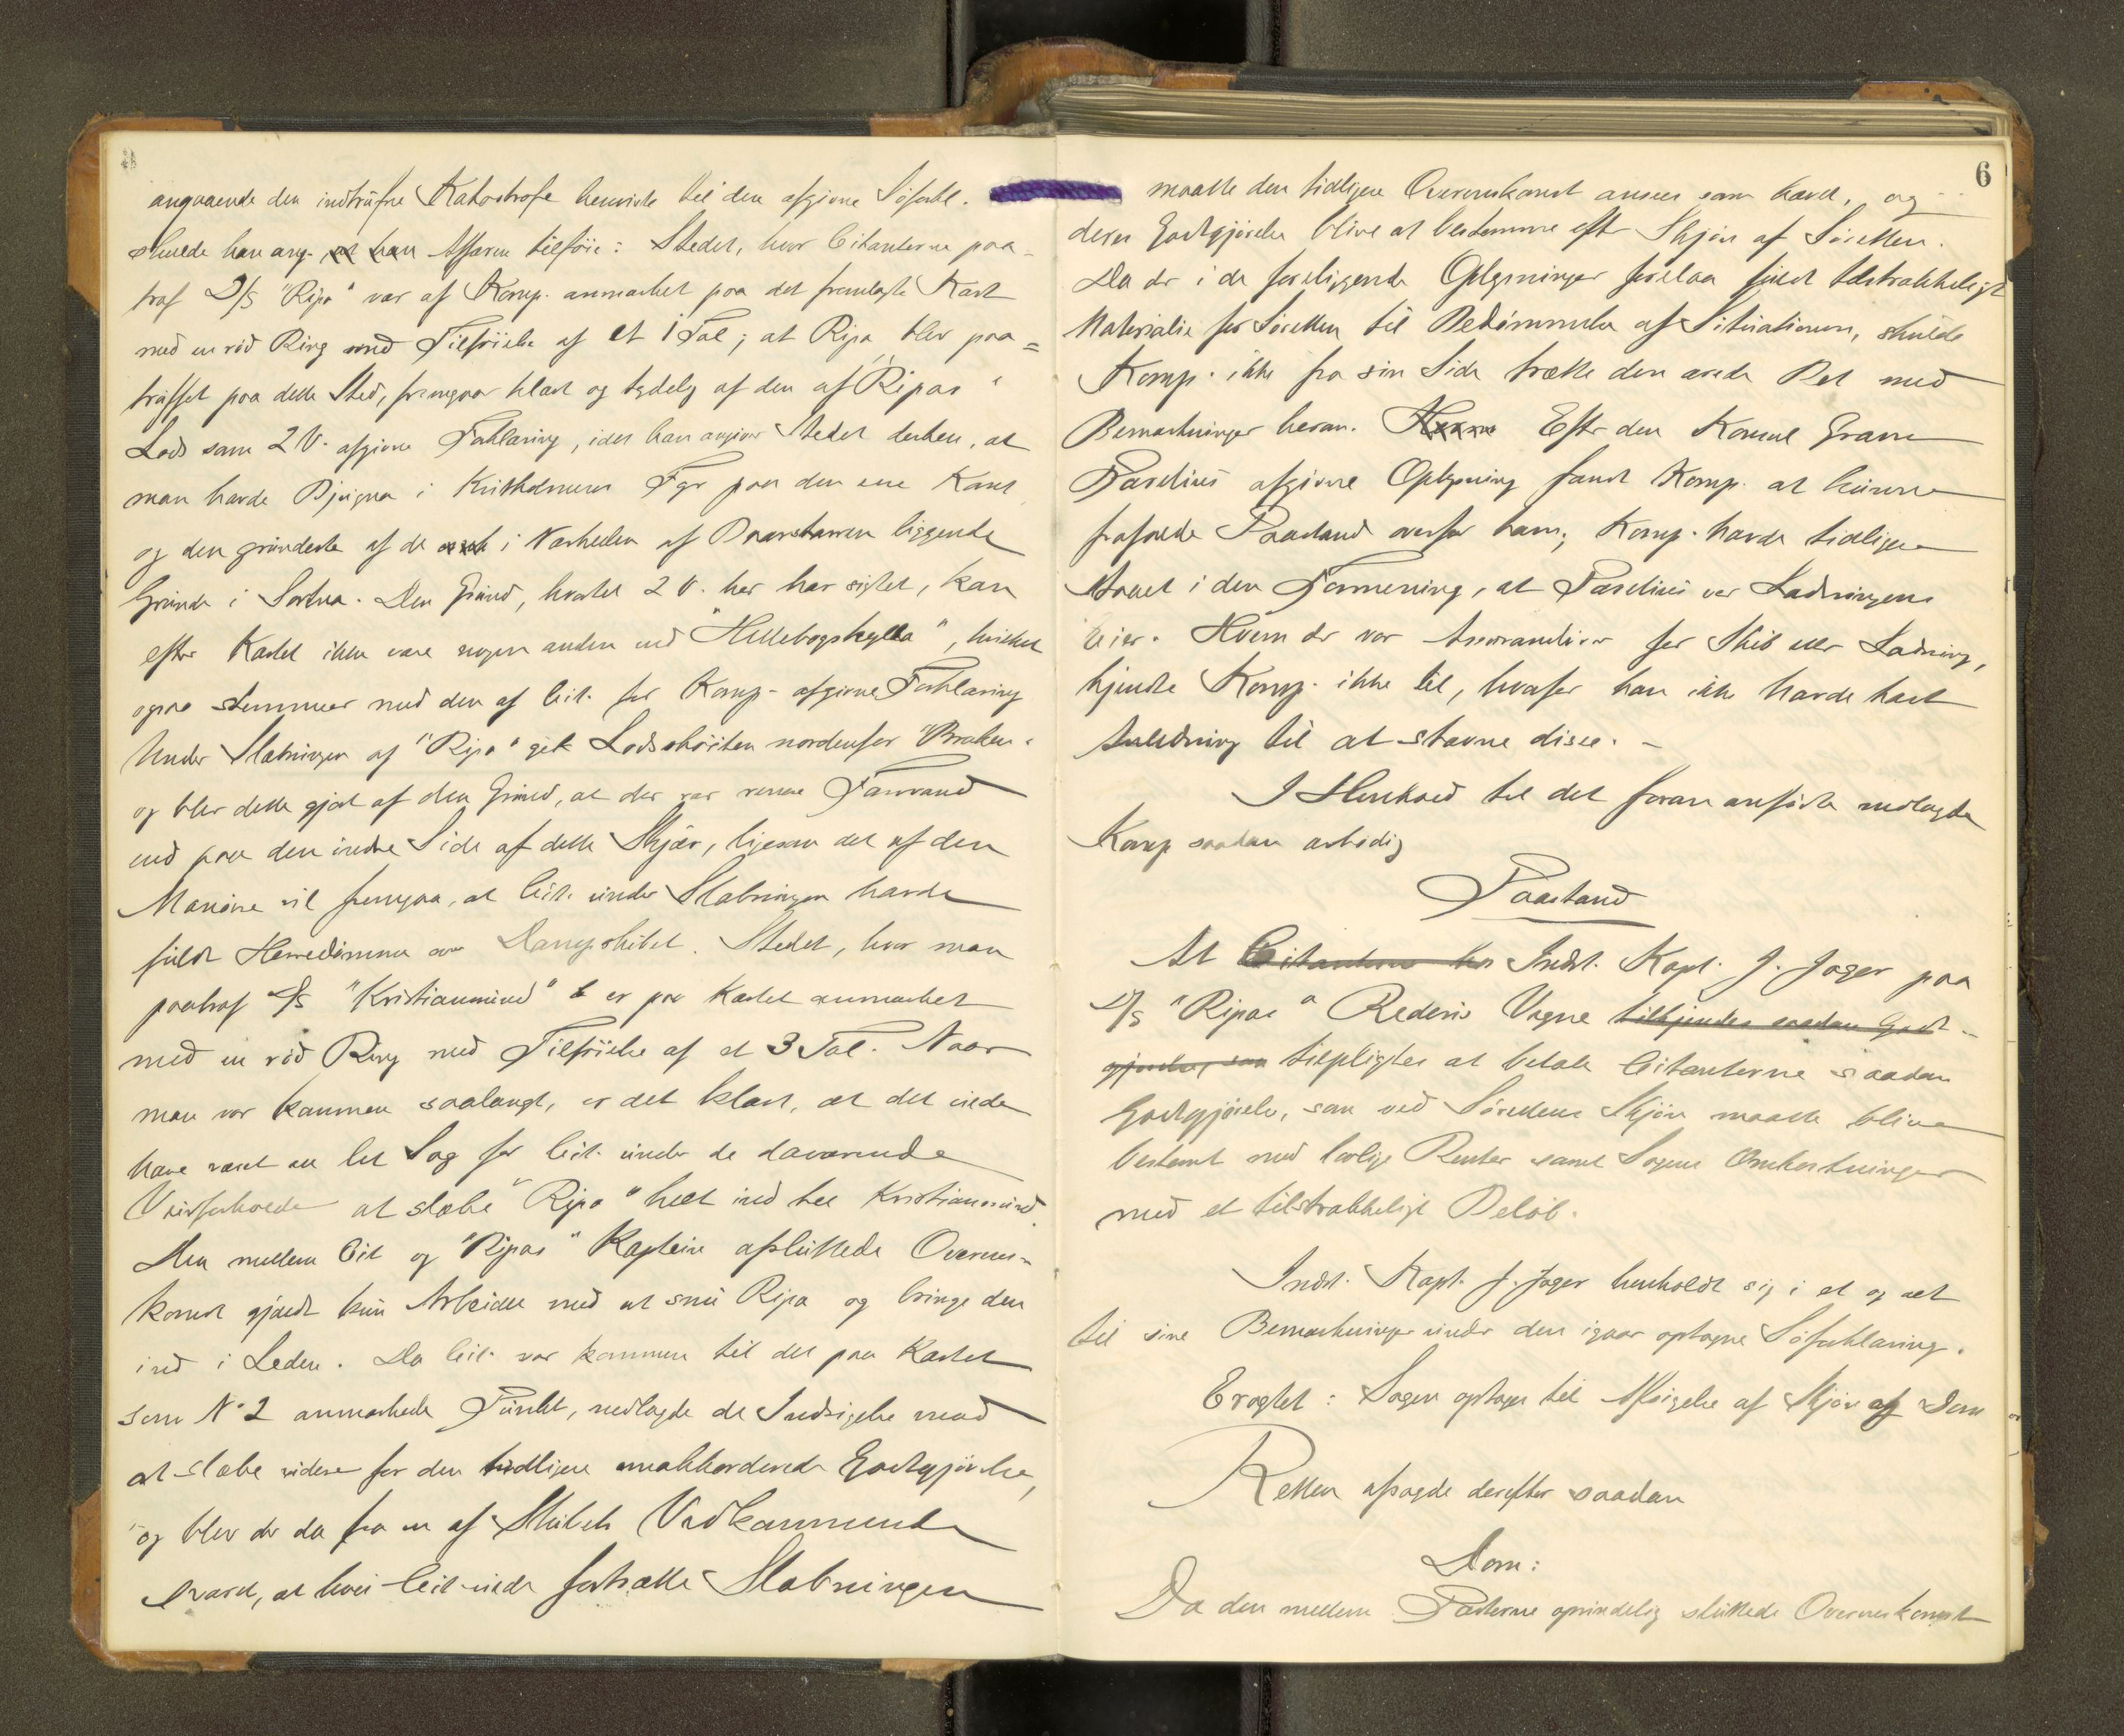 angaaende den indtrufne Katastrofe henviste til den afgivne Söforkl.
skulde han ang. Affæren tilföie: Stedet, hvor Citanterne paa-
traf D/S "Ripa" var af Komp. anmærket paa det fremlagte Kart
med en röd Ring med Tilföielse af et 1 Tal; at Ripa blev paa=
truffet paa dette Sted, fremgaar klart og tydelig af den af "Ripas"
Lods som 2 V. afgivne Forklaring, ider han angiver Stedet derhen, at
man havde Bjugna i Kvitholmens Fyr paa den ene Kant
og den grundeste af de i Nærheden af liggende
Grunde i Sortna. Den Grund, hvortil 2 V. her har sigtet, kan
efter Kartet ikke være nogen anden end "Hestebogskylla", hvilket
ogsaa stemmer med den af Cit. for Komp. afgivne Forklaring
Under Slæbningen af "Ripa" gik Lodssköiten nordenfor "Braken"
og blev dette gjort af den Grund, at der var renere Farvand
end paa den indre Side af dette Skjær, ligesom det af den
Manövre vil fremgaa, at Cit. under Slæbningen havde
fuldt Herredömme over Dampskibet. Stedet, hvor man
paatraf D/S "Kristiansund" er paa Kartet anmærket
med en röd Ring med Tilföielse af et 3 Tal. Naar
man var kommen saalangt, er det klart, at det vilde
have været en let Sag for Cit. under de daværende
Veirforholde at slæbe "Ripa" helt ind til Kristiansund.
Den mellem Cit og "Ripas" Kaptein afsluttede Overens-
komst gjaldt kun Arbeidet med at snu Ripa og bringe den
ind i Leden. Da Cit. var kommen til det paa Kartet
som No 2 anmærkede Punkt, nedlagde de Indsigelse mod
at slæbe videre for den tidligere akkorderede Godtgjörelse,
og blev der da fra en af Skibets Vedkommende
svaret, at hvis Cit. vilde fortsætte Slæbningen
6
maatte den tidligere Overenskomst ansees som hævet, og
deres Godtgjörelse blive at bestemme efter Skjön af Söretten.
Da der i de foreliggende Oplysninger forelaa fuldt tilstrækkeligt
Materialie for Söretten til Bedömmelse af Situationen, skulde
Komp. ikke fra sin Side trætte den ærede Ret med
Bemærkninger herom. Efter den Konsul Gram
Parelius afgivne Oplysning fandt Komp. at kunne
frafalde Paastand overfor ham; Komp. havde tidligere
staaet i den Formening, at Parelius var Ladningens
Eier. Hvem der var Assurandörer for Skib eller Ladning,
kjendte Komp. ikke til, hvorfor han ikke havde havt
Anledning til at stævne disse. –
I Henhold til det foran anförte nedlagde
Komp saadan ærbödig
Paastand
At Citanterne hos Indst. Kapt. J. Jager paa
D/S "Ripas" Rederis Vegne tilkjendes saadan Godt-
gjörelse, som tilpligtes at betale Citanterne saadan
Godtgjörelse, som ved Sörettens Skjön maatte blive
bestemt med lovlige Renter samt Sagens Omkostninger
med et tilstrækkeligt Belöb.
Indst. Kapt. J. Jager henholdt sig i et og alt
til sine Bemærkninger under den igaar optagne Söforklaring.
Eragtet: Sagen optages til Afsigelse af Skjön af Dom
Retten afsagde derefter saadan
Dom:
Da den mellem Parterne oprindelig sluttede Overenskomst